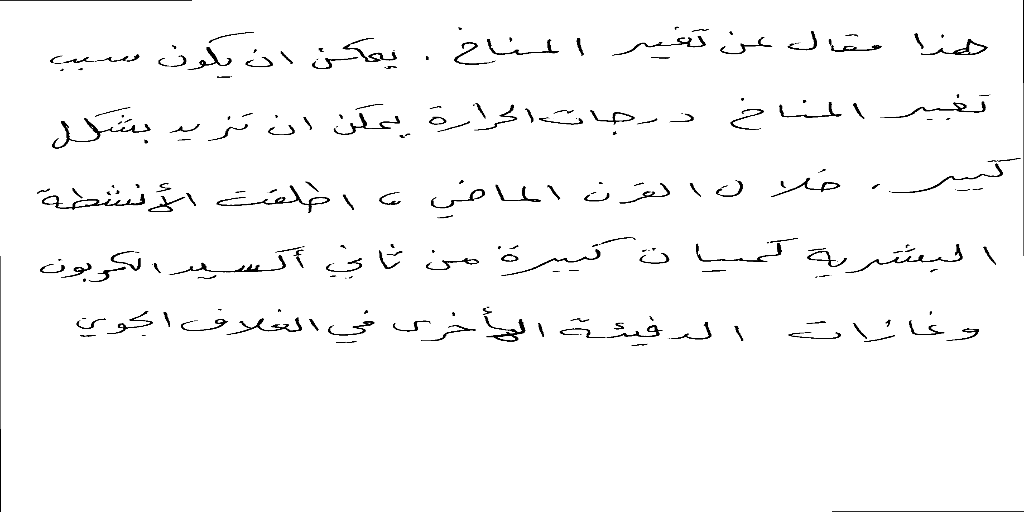 هذا مقال عن تغيير المناخ . يمكن ان يكون سبب
تغيير المناخ درجات الحرارة يمكن ان تزيد بشكل
كبير . خلال القرن الماضي ، اطلقت الأنشطة
البشرية كميات كبيرة من ثاني أكسيد الكربون
وغازات الدفيئة الأخرى في الغلاف الجوي